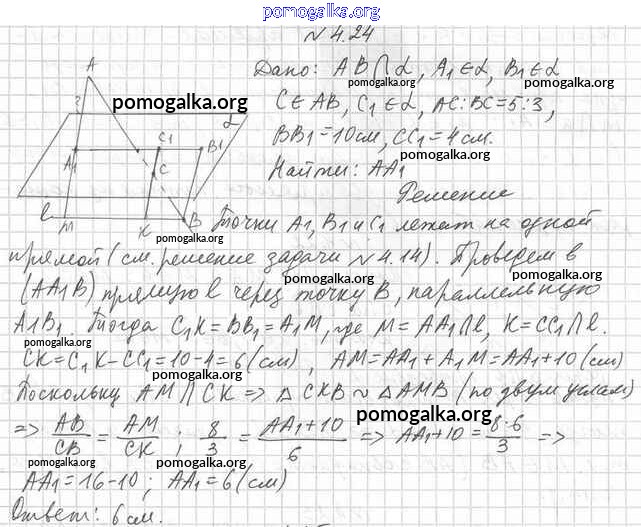 pomogalka.org
№ 4.24
Дано: AB ∩ α, A₁ ∈ α, B₁ ∈ α
C ∈ AB, C₁ ∈ α, AC:BC = 5:3,
BB₁ = 10 см, CC₁ = 4 см.
Найти: AA₁
Решение
Точки A₁, B₁ и C₁ лежат на одной
прямой (см. решение задачи № 4.14). Проведем в
(AA₁B) прямую l через точку B, параллельную
A₁B₁. Тогда C₁K = BB₁ = A₁M, где M = AA₁∩l, K = CC₁∩l.
CK = C₁K – CC₁ = 10 – 4 = 6 (см), AM = AA₁ + A₁M = AA₁ + 10 (см)
Поскольку AM ∥ CK => △ CKB ~ △ AMB (по двум углам)
=> AB/CB = AM/CK ; 8/3 = (AA₁ + 10)/6 => AA₁ + 10 = 8·6/3 =>
AA₁ = 16 – 10 ; AA₁ = 6 (см)
Ответ: 6 см.
A
α
A₁
C₁
B₁
C
l
M
K
B
pomogalka.org
pomogalka.org
pomogalka.org
pomogalka.org
pomogalka.org
pomogalka.org
pomogalka.org
pomogalka.org
pomogalka.org
pomogalka.org
pomogalka.org
pomogalka.org